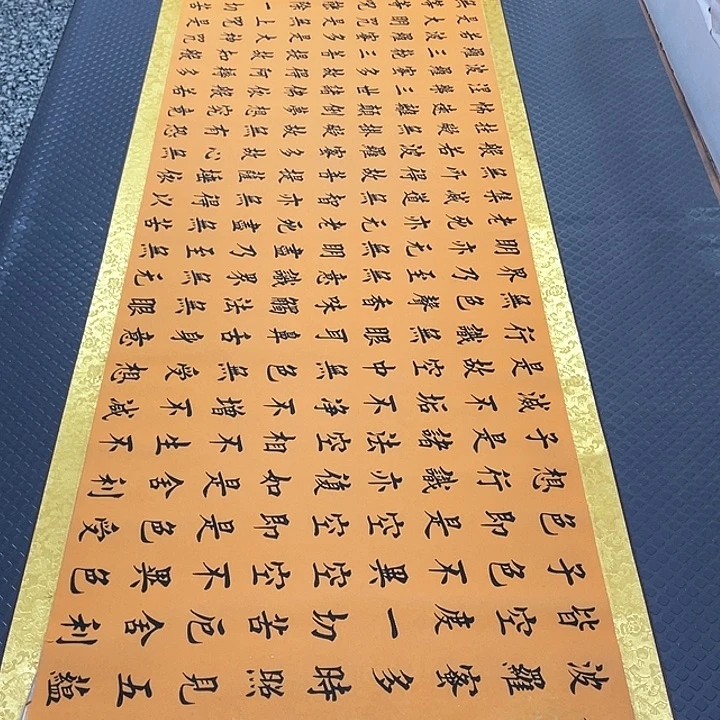 波羅蜜多時照見五蘊
皆空度一切苦厄舍利
子色不異空空不異色
色即是空空即是色受
想行識亦復如是舍利
子是諸法空相不生不
滅不垢不净不增不減
是故空中無色無受想
行識無眼耳鼻舌身意
無色聲香味觸法無眼
界乃至無意識界無无
明亦无無明盡乃至無
老死亦无老死盡無苦
集滅道無智亦無得以
無所得故菩提薩埵依
般若波羅蜜多故心無
挂礙無挂礙故無有恐
怖遠離顛倒夢想究竟
涅槃三世諸佛依般若
波羅蜜多故得阿耨多
羅三藐三菩提故知般
若波羅蜜多是大神咒
是大明咒是無上咒是
無等等咒能除一切苦